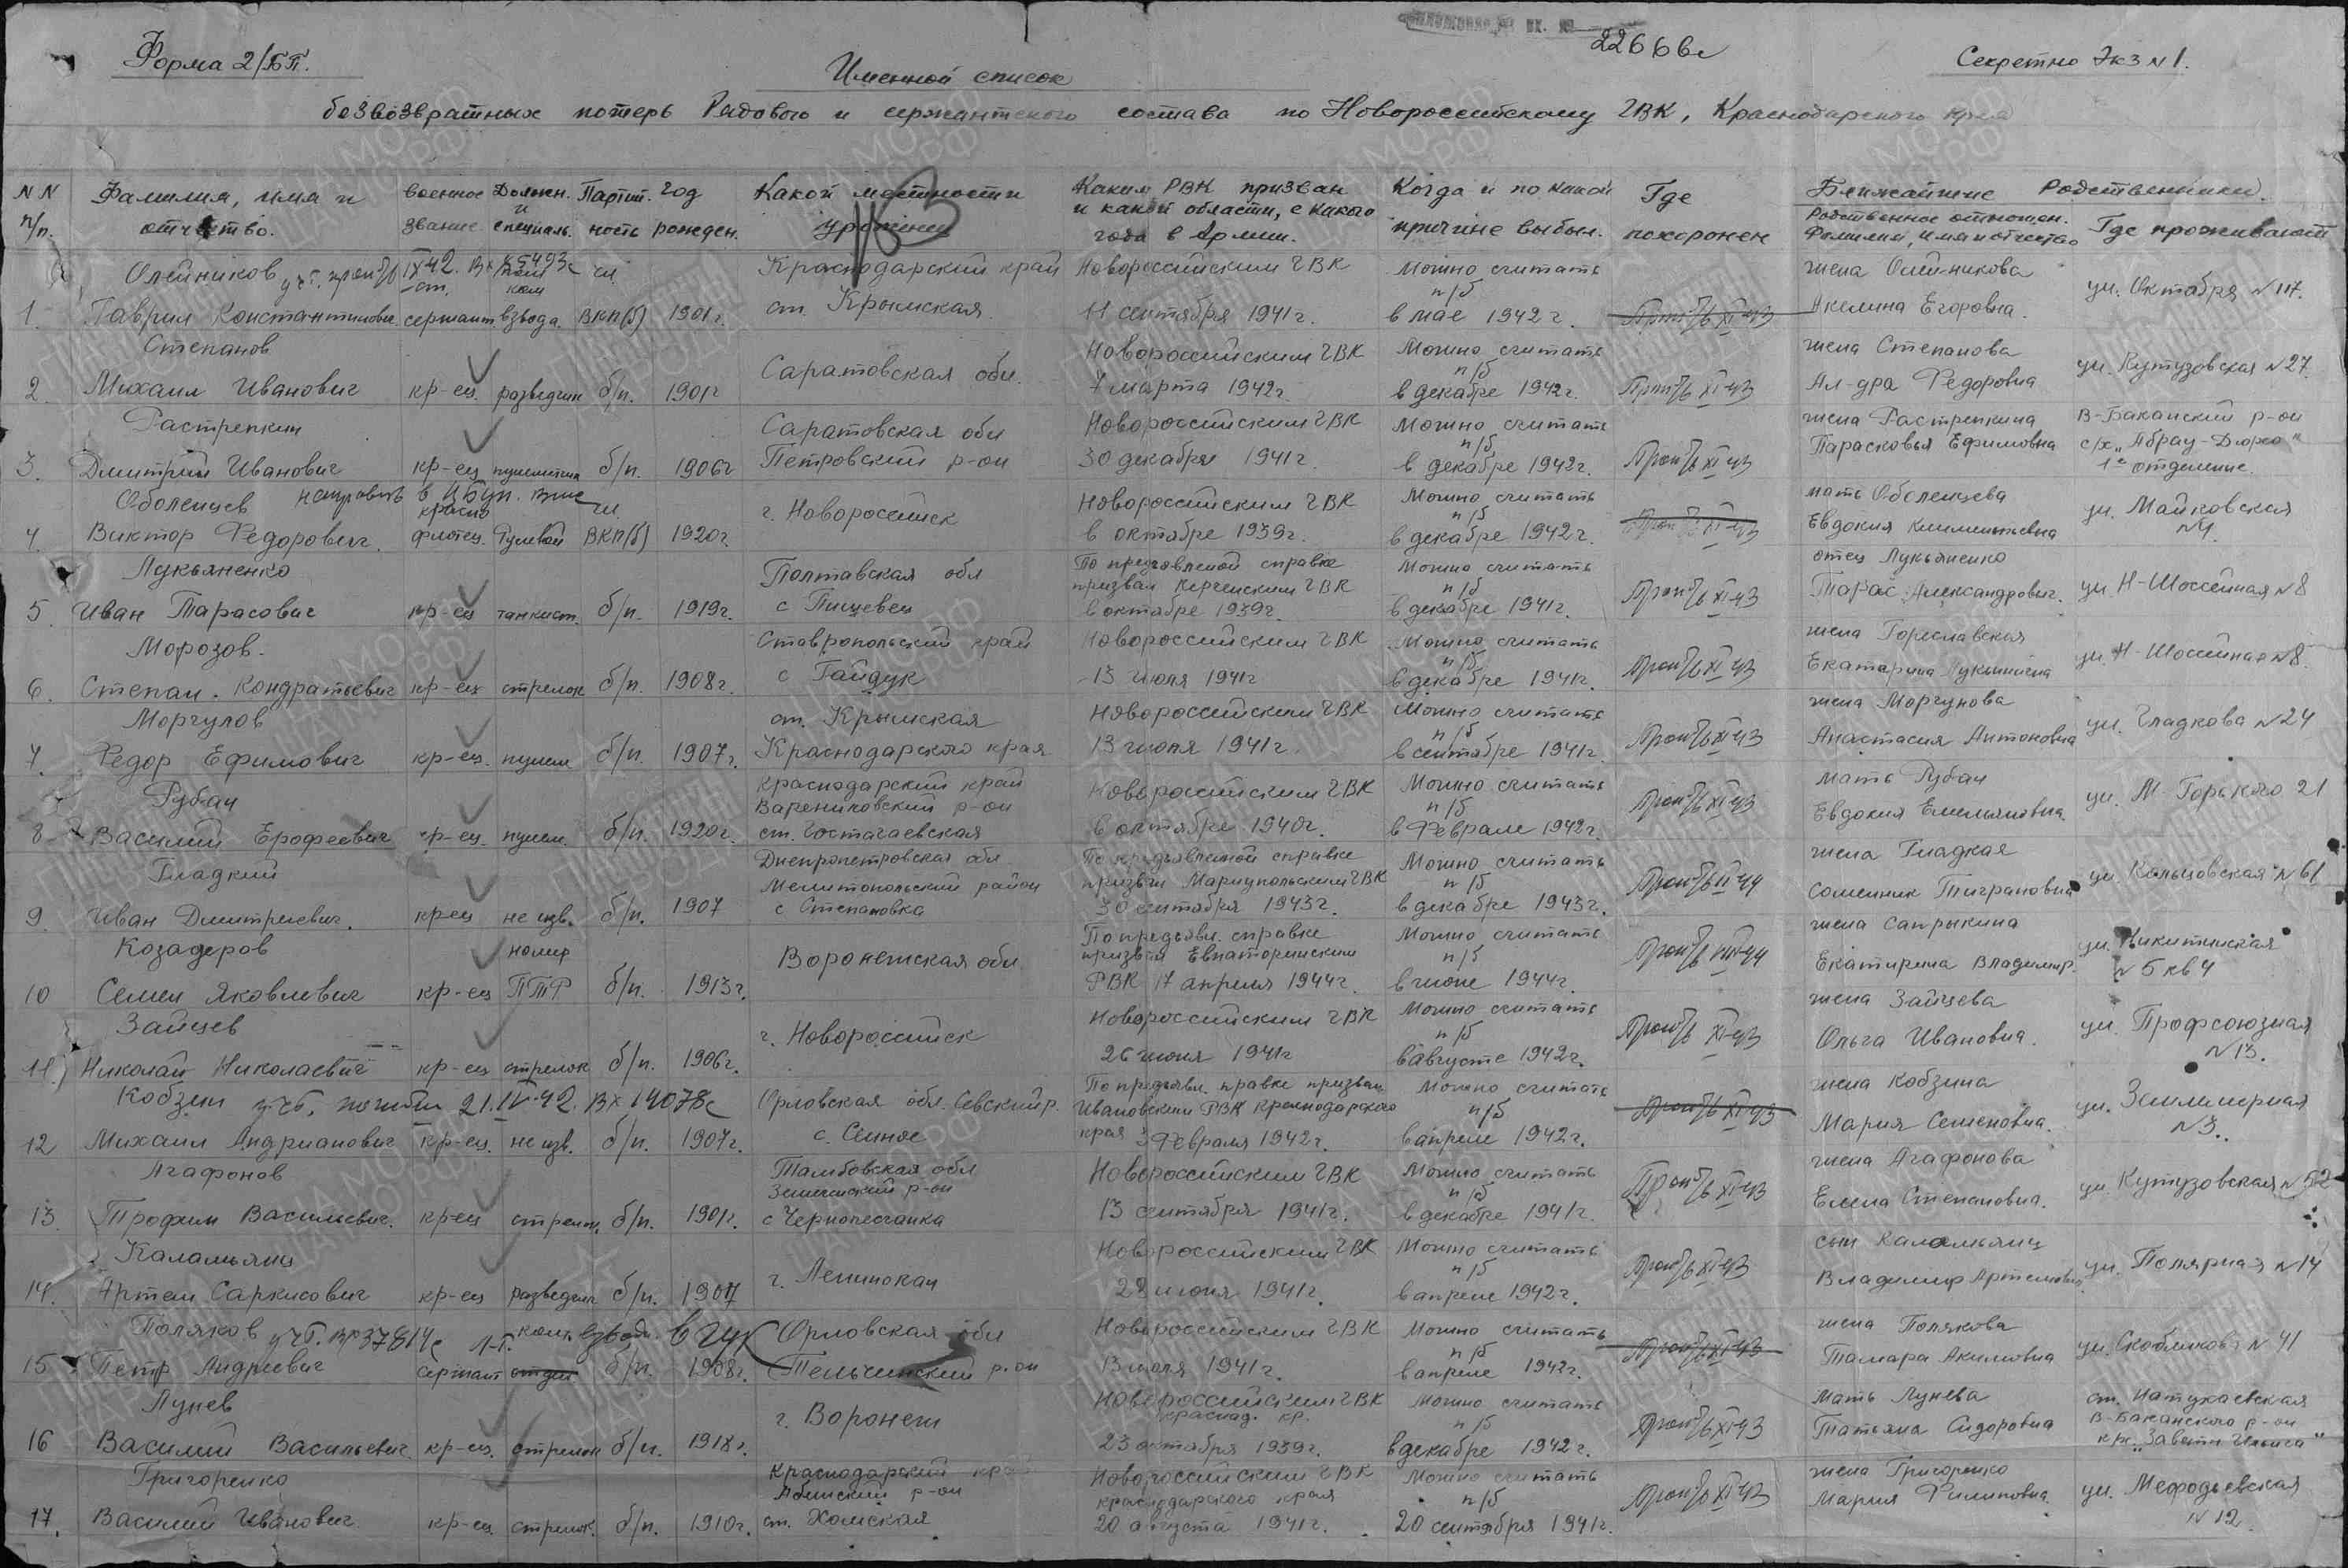 Форма 2/БП.
22666с
Секретно Экз N1.
Именной список
безвозвратных потерь Рядового и сержантского состава по Новороссийскому ГВК, Краснодарского края
NN п/п. Фамилия, имя и отчество. военное звание Должн. и специаль. Партий. ность год рожден. Какой местности уроженец Каким РВК призван и какой области, с какого года в Армии. Когда и по какой причине выбыл. Где похоронен Ближайшие Родственники.
Родственное отношен. Фамилия, имя и отчество Где проживают
1. Олейников Гаврил Константинович ст. сержант пом ком взвода. чл. ВКП(б) 1901г. Краснодарский край ст. Крымская. Новороссийским ГВК 11 сентября 1941г. Можно считать п/б в мае 1942г. жена Олейникова Акелина Егоровна. ул. Октября N117.
2. Степанов Михаил Иванович кр-ец. разведчик б/п. 1901г Саратовская обл. Новороссийским ГВК 7 марта 1942г. Можно считать п/б в декабре 1942г. жена Степанова Ал-дра Федоровна ул. Кутузовская N27.
3. Растрепкин Дмитрий Иванович кр-ец б/п. 1906г Саратовская обл Петровский р-он Новороссийским ГВК 30 декабря 1941г. Можно считать п/б в декабре 1942г. жена Растрепкина Парасковья Ефимовна В-Баканский р-он с/х "Абрау-Дюрсо" 1е отделение.
4. Оболенцев Виктор Федорович. красно флотец. Рулевой чл. ВКП(б) 1920г. г. Новороссийск Новороссийским ГВК в октябре 1939г. Можно считать п/б в декабре 1942г. мать Оболенцева Евдокия Климентьевна ул. Майковская N4.
5. Лукьяненко Иван Тарасович кр-ец танкист. б/п. 1919г. Полтавская обл По предъявленой справке призван Керченским ГВК в октябре 1939г. Можно считать п/б в декабре 1941г. отец Лукьяненко Тарас Александрович. ул. Н-Шоссейная N8
6. Морозов. Степан. Кондратьевич кр-ец стрелок б/п. 1908г. Ставропольский край с Гайдук Новороссийским ГВК 13 июля 1941г Можно считать п/б в декабре 1941г. жена Гореславская Екатерина ул. Н-Шоссейная N8.
7. Моргунов Федор Ефимович кр-ец. пулем б/п. 1907г. ст. Крымская Краснодарского края Новороссийским ГВК 13 июля 1941г. Можно считать п/б в сентябре 1941г. жена Моргунова Анастасия Антоновна ул. Гладкова N24
8 Рубан Василий Ерофеевич кр-ец. пулем. б/п. 1920г. Краснодарский край Варениковский р-он ст. Гостагаевская Новороссийским ГВК в октябре 1940г. Можно считать п/б в Феврале 1942г. мать Рубан Евдокия Емельяновна. ул. М. Горького 21
9. Гладкий Иван Дмитриевич. кр-ец не изв. б/п. 1907 Днепропетровская обл. Мелитопольский район с Степановка По предъявленной справке призван Мариупольским ГВК 30 сентября 1943г. Можно считать п/б в декабре 1943г. жена Гладкая Тиграновна ул. Кольцовская N61
10 Козадеров Семен Яковлевич кр-ец номер ПТР б/п. 1913г. Воронежская обл. По предъявл. справке призван Евпаторийским РВК 17 апреля 1944г. Можно считать п/б в июне 1944г. жена Сапрыкина Екатирина Владимир. ул. Никитинская N5 кв 4
11. Зайцев Николай Николаевич кр-ец стрелок б/п. 1906г. г. Новороссийск Новороссийским ГВК 26 июня 1941г Можно считать п/б в августе 1942г. жена Зайцева Ольга Ивановна. ул. Профсоюзная N13.
12 Кобзин уч. погиб 21.IV.42. Вх 14078с Михаил Андрианович кр-ец. не изв. б/п. 1907г. Орловская обл. Севский р. По предъявл. правке призван Ивановским РВК Краснодарского края Февраля 1942г. Можно считать п/б в апреле 1942г. жена Кобзина Мария Семеновна. ул. N3.
13. Агафонов Трофим Васильевич. кр-ец б/п. 1901г. Тамбовская обл р-он Новороссийским ГВК 13 сентября 1941г. Можно считать п/б в декабре 1941г. жена Агафонова Елена Степановна. ул. Кутузовская N52
14. Каламьянц Артем Саркисович кр-ец разведчик б/п. 1907 г. Ленинокан Новороссийским ГВК 28 июня 1941г. Можно считать п/б в апреле 1942г. сын Каламьянц Владимир Артемович ул. Полярная N14
15 Поляков Петр Андреевич сержант б/п. 1908г. Орловская обл Тельченский р-он Новороссийским ГВК 13 июля 1941г. Можно считать п/б в апреле 1942г. жена Полякова Тамара Акимовна ул. Скобликова N41
16 Лунев Василий Васильевич. кр-ец. стрелок б/п. 1918г. г. Воронеж Новороссийским ГВК краснод. кр. 23 октября 1939г. Можно считать п/б в декабре 1942г. мать Лунева Татьяна Сидоровна ст. Натухаевская В-Баканского р-он "Заветы Ильича"
17. Григоренко Василий Иванович кр-ец. стрелок. б/п. 1910г. Краснодарский край Абинский р-он ст. Холмская Новороссийским ГВК краснодарского края 20 августа 1941г. Можно считать п/б 20 сентября 1941г. жена Григоренко Мария Филиповна. ул. Мефодьевская N12.